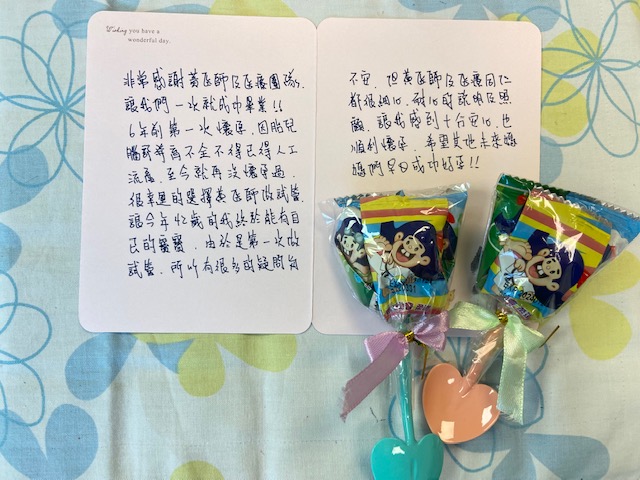 Wishing you have a
wonderful day.
非常感謝黃醫師及醫療團隊,
讓我們一次就成功畢業!!
6年前第一次懷孕,因胎兒
腦部發育不全不得已得人工
流產,至今就再沒懷孕過,
很幸運的選擇黃醫師做試管,
讓今年42歲的我終於能有自
己的寶寶,由於是第一次做
試管,所以有很多的疑問與
不安,但黃醫師及醫療同仁
都很細心,耐心的說明及照
顧,讓我感到十分安心,也
順利懷孕,希望其他未來媽
媽們早日成功好孕!!